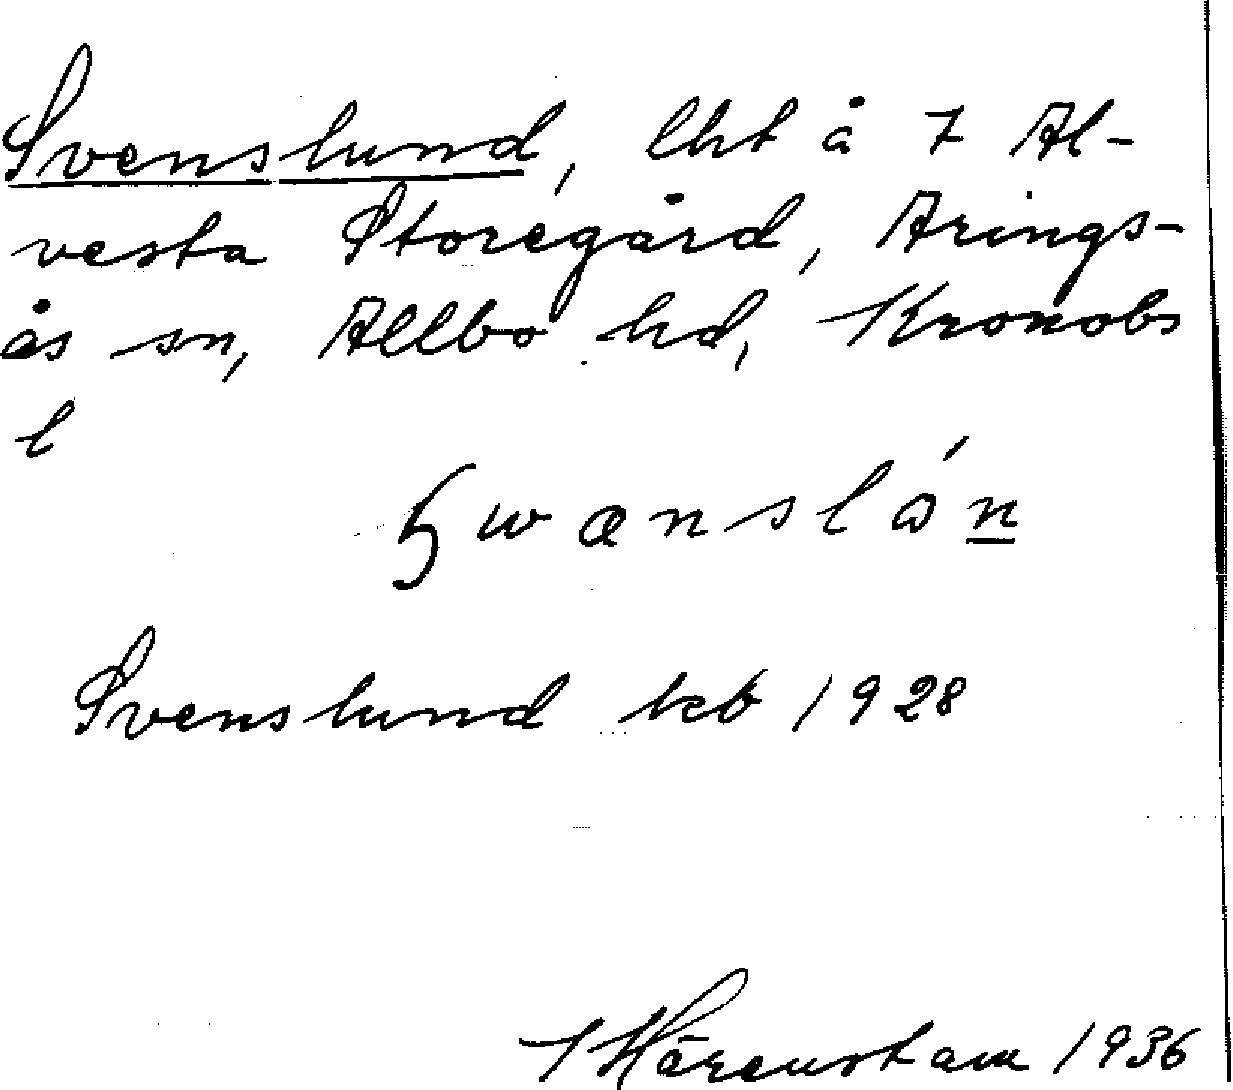 Svenslund, lht å 7 Al-
vesta Storegård, Arings-
ås sn, Allbo hd, Kronobs
l
Hwænslón
Svenslund kb 1928
Hårenstam 1936